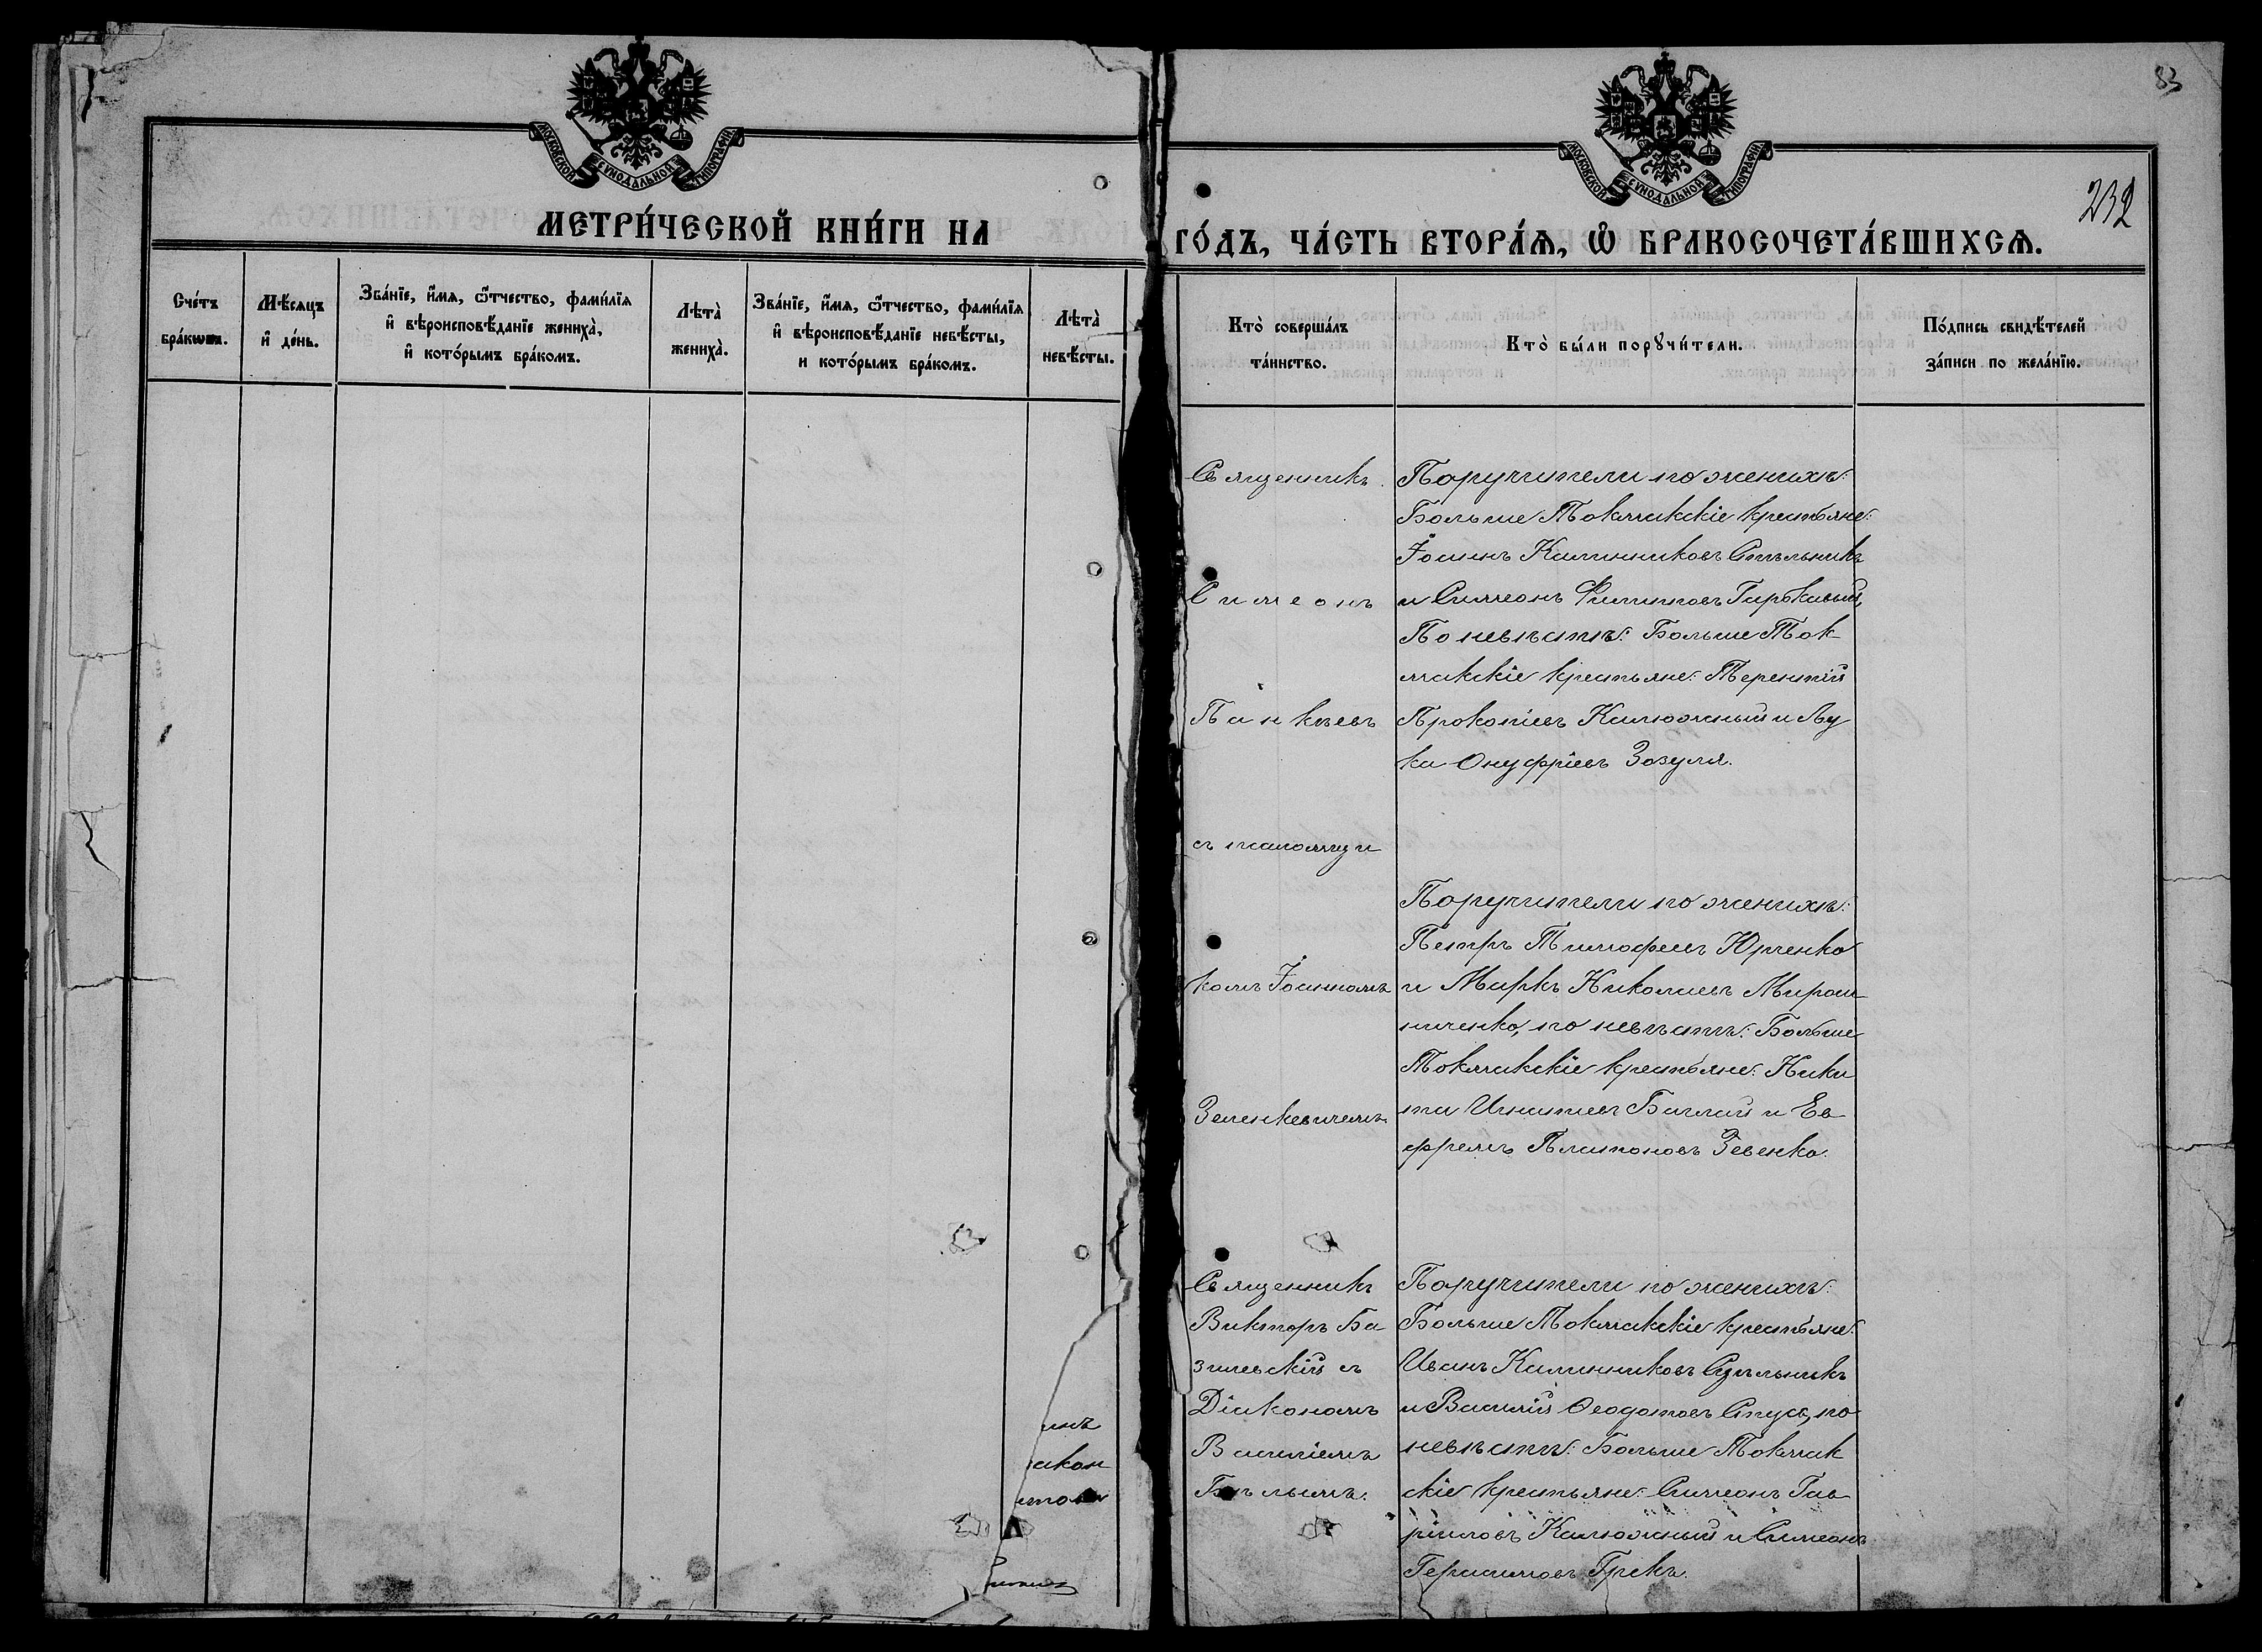 83
МОСКОВСКОЙ СѴНОДАЛЬНОЙ ТИПОГРАФІИ
МОСКОВСКОЙ СѴНОДАЛЬНОЙ ТИПОГРАФІИ
232
МЕТРИ́ЧЕСКОЙ КНИ́ГИ НА
ГО́ДЪ, ЧА́СТЬ ВТОРА́Ѧ, Ѽ БРАКОСОЧЕТА́ВШИХСѦ.
Сче́тъ
бра́кωвъ.
Мѣ́сяцъ
и҆ де́нь.
Зва́нїе, и҆́мя, ѻ҆́тчество, фами́лїя
и҆ вѣроисповѣ́данїе жениха̀,
и҆ кото́рымъ бра́комъ.
Лѣта̀
жениха̀.
Зва́нїе, и҆́мя, ѻ҆́тчество, фами́лїя
и҆ вѣроисповѣ́данїе невѣ́сты,
и кото́рымъ бра́комъ.
Лѣта̀
невѣ́сты.
Кто̀ соверша́лъ
та́инство.
Кто̀ бы́ли порꙋчи́тели.
По́дпись свидѣ́телей
за́писи по жела́нїю.
Священникъ
Симеонъ
Панкѣевъ
съ псаломщи
комъ Іоанномъ
Зеленкевичемъ
Поручители по женихѣ:
Больше Токмакскіе крестьяне:
Іосифъ Калинниковъ
и Симеонъ Филипповъ
По невѣстѣ: Больше Ток
макскіе крестьяне: Терентій
Прокопіевъ Калюжный и Лу
ка Онуфріевъ Зозуля.
Поручители по женихѣ:
Петръ Тимофеевъ Юрченко
и Маркъ Николаевъ Мирош
ниченко, по невѣстѣ: Больше
Токмакскіе крестьяне: Ники
та Игнатіевъ Баглай и Ев
фремъ Платоновъ Зевенко.
Священникъ
Викторъ Ба
зилевскій съ
Діакономъ
Василіемъ
Бѣлымъ.
Поручители по женихѣ:
Больше Токмакскіе крестьяне:
Иванъ Калинниковъ
и Василій Ѳеодотовъ Стусъ, по
невѣстѣ: Больше Токмак
скіе крестьяне: Симеонъ Гав
ріиловъ Калюжный и Симеонъ
Герасимовъ Грекъ.